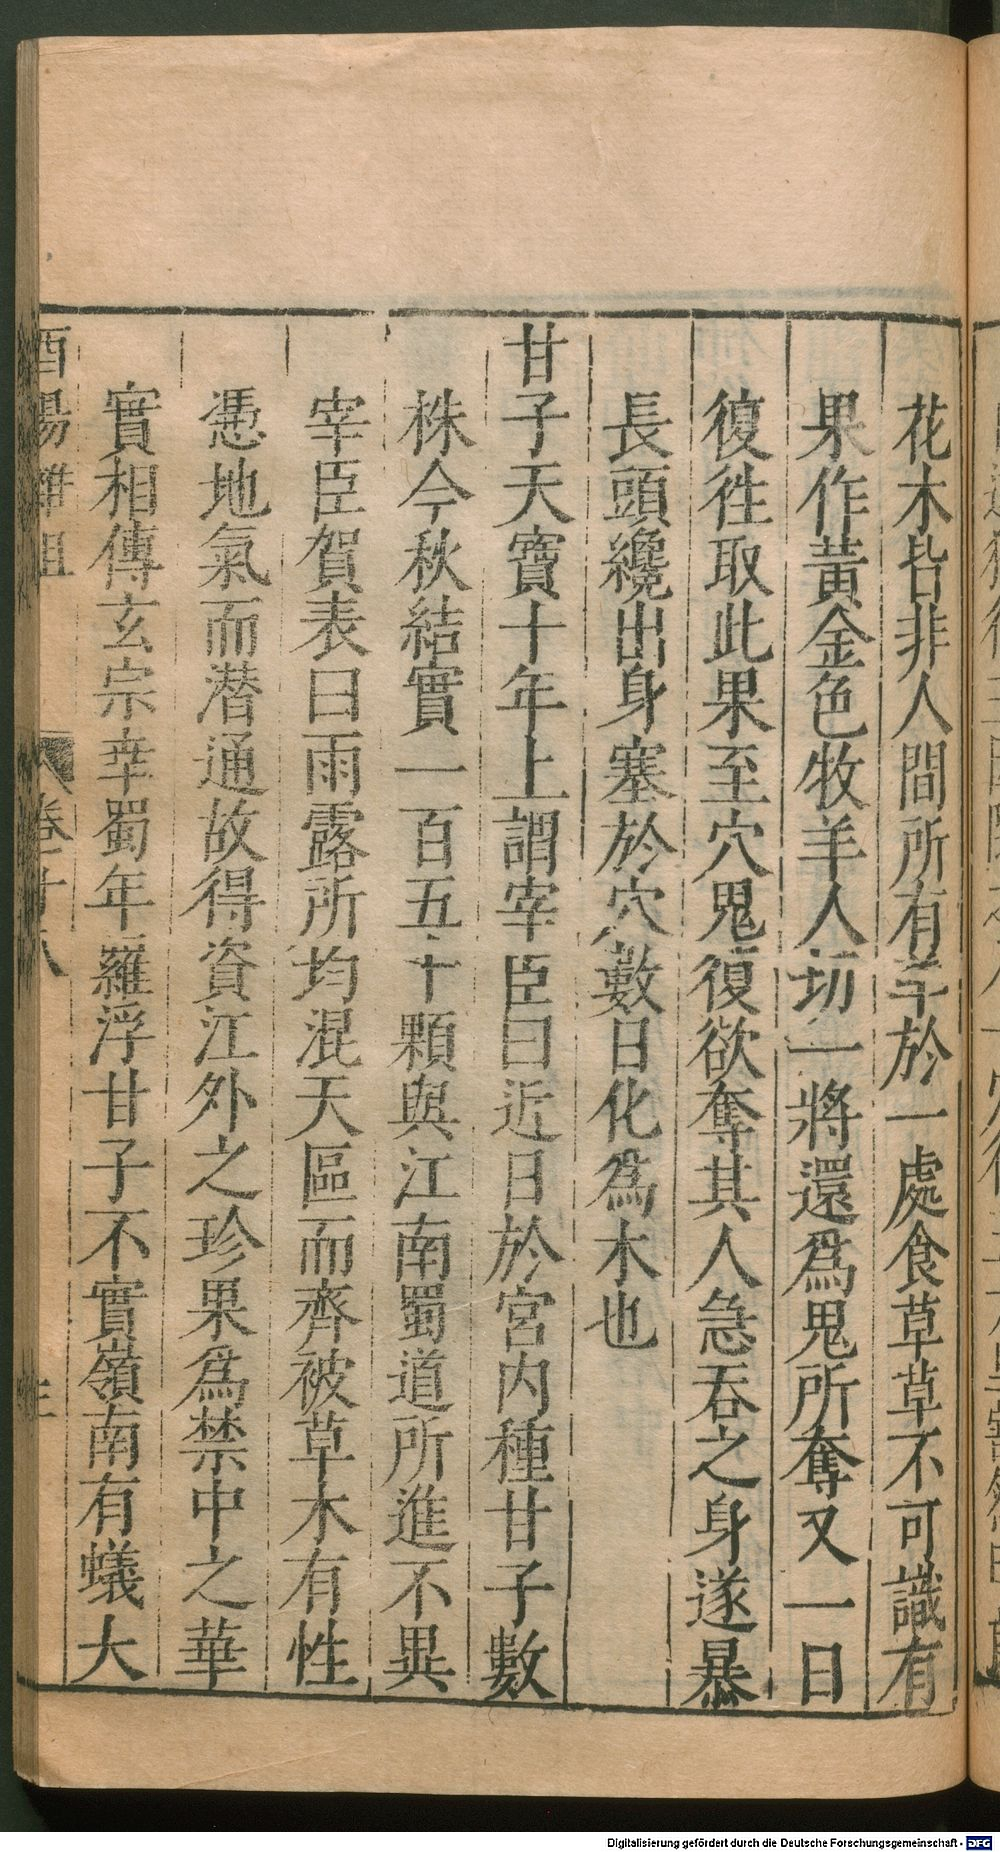 花木皆非人間所有羊於一處食草草不可識有
果作黃金色牧羊人切一將還爲鬼所奪又一日
復徃取此果至穴鬼復欲奪其人急吞之身遂暴
長頭纔出身塞於穴數日化爲木也
甘子天寶十年上謂宰臣曰近日於宮内種甘子數
株今秋結實一百五十顆與江南蜀道所進不異
宰臣賀表曰雨露所均混天區而齊被草木有性
憑地氣而潜通故得資江外之珍果爲禁中之華
實相傳玄宗幸蜀年羅浮甘子不實嶺南有蟻大
酉陽雜俎
卷十八
Digitalisierung gefördert durch die Deutsche Forschungsgemeinschaft - DFG